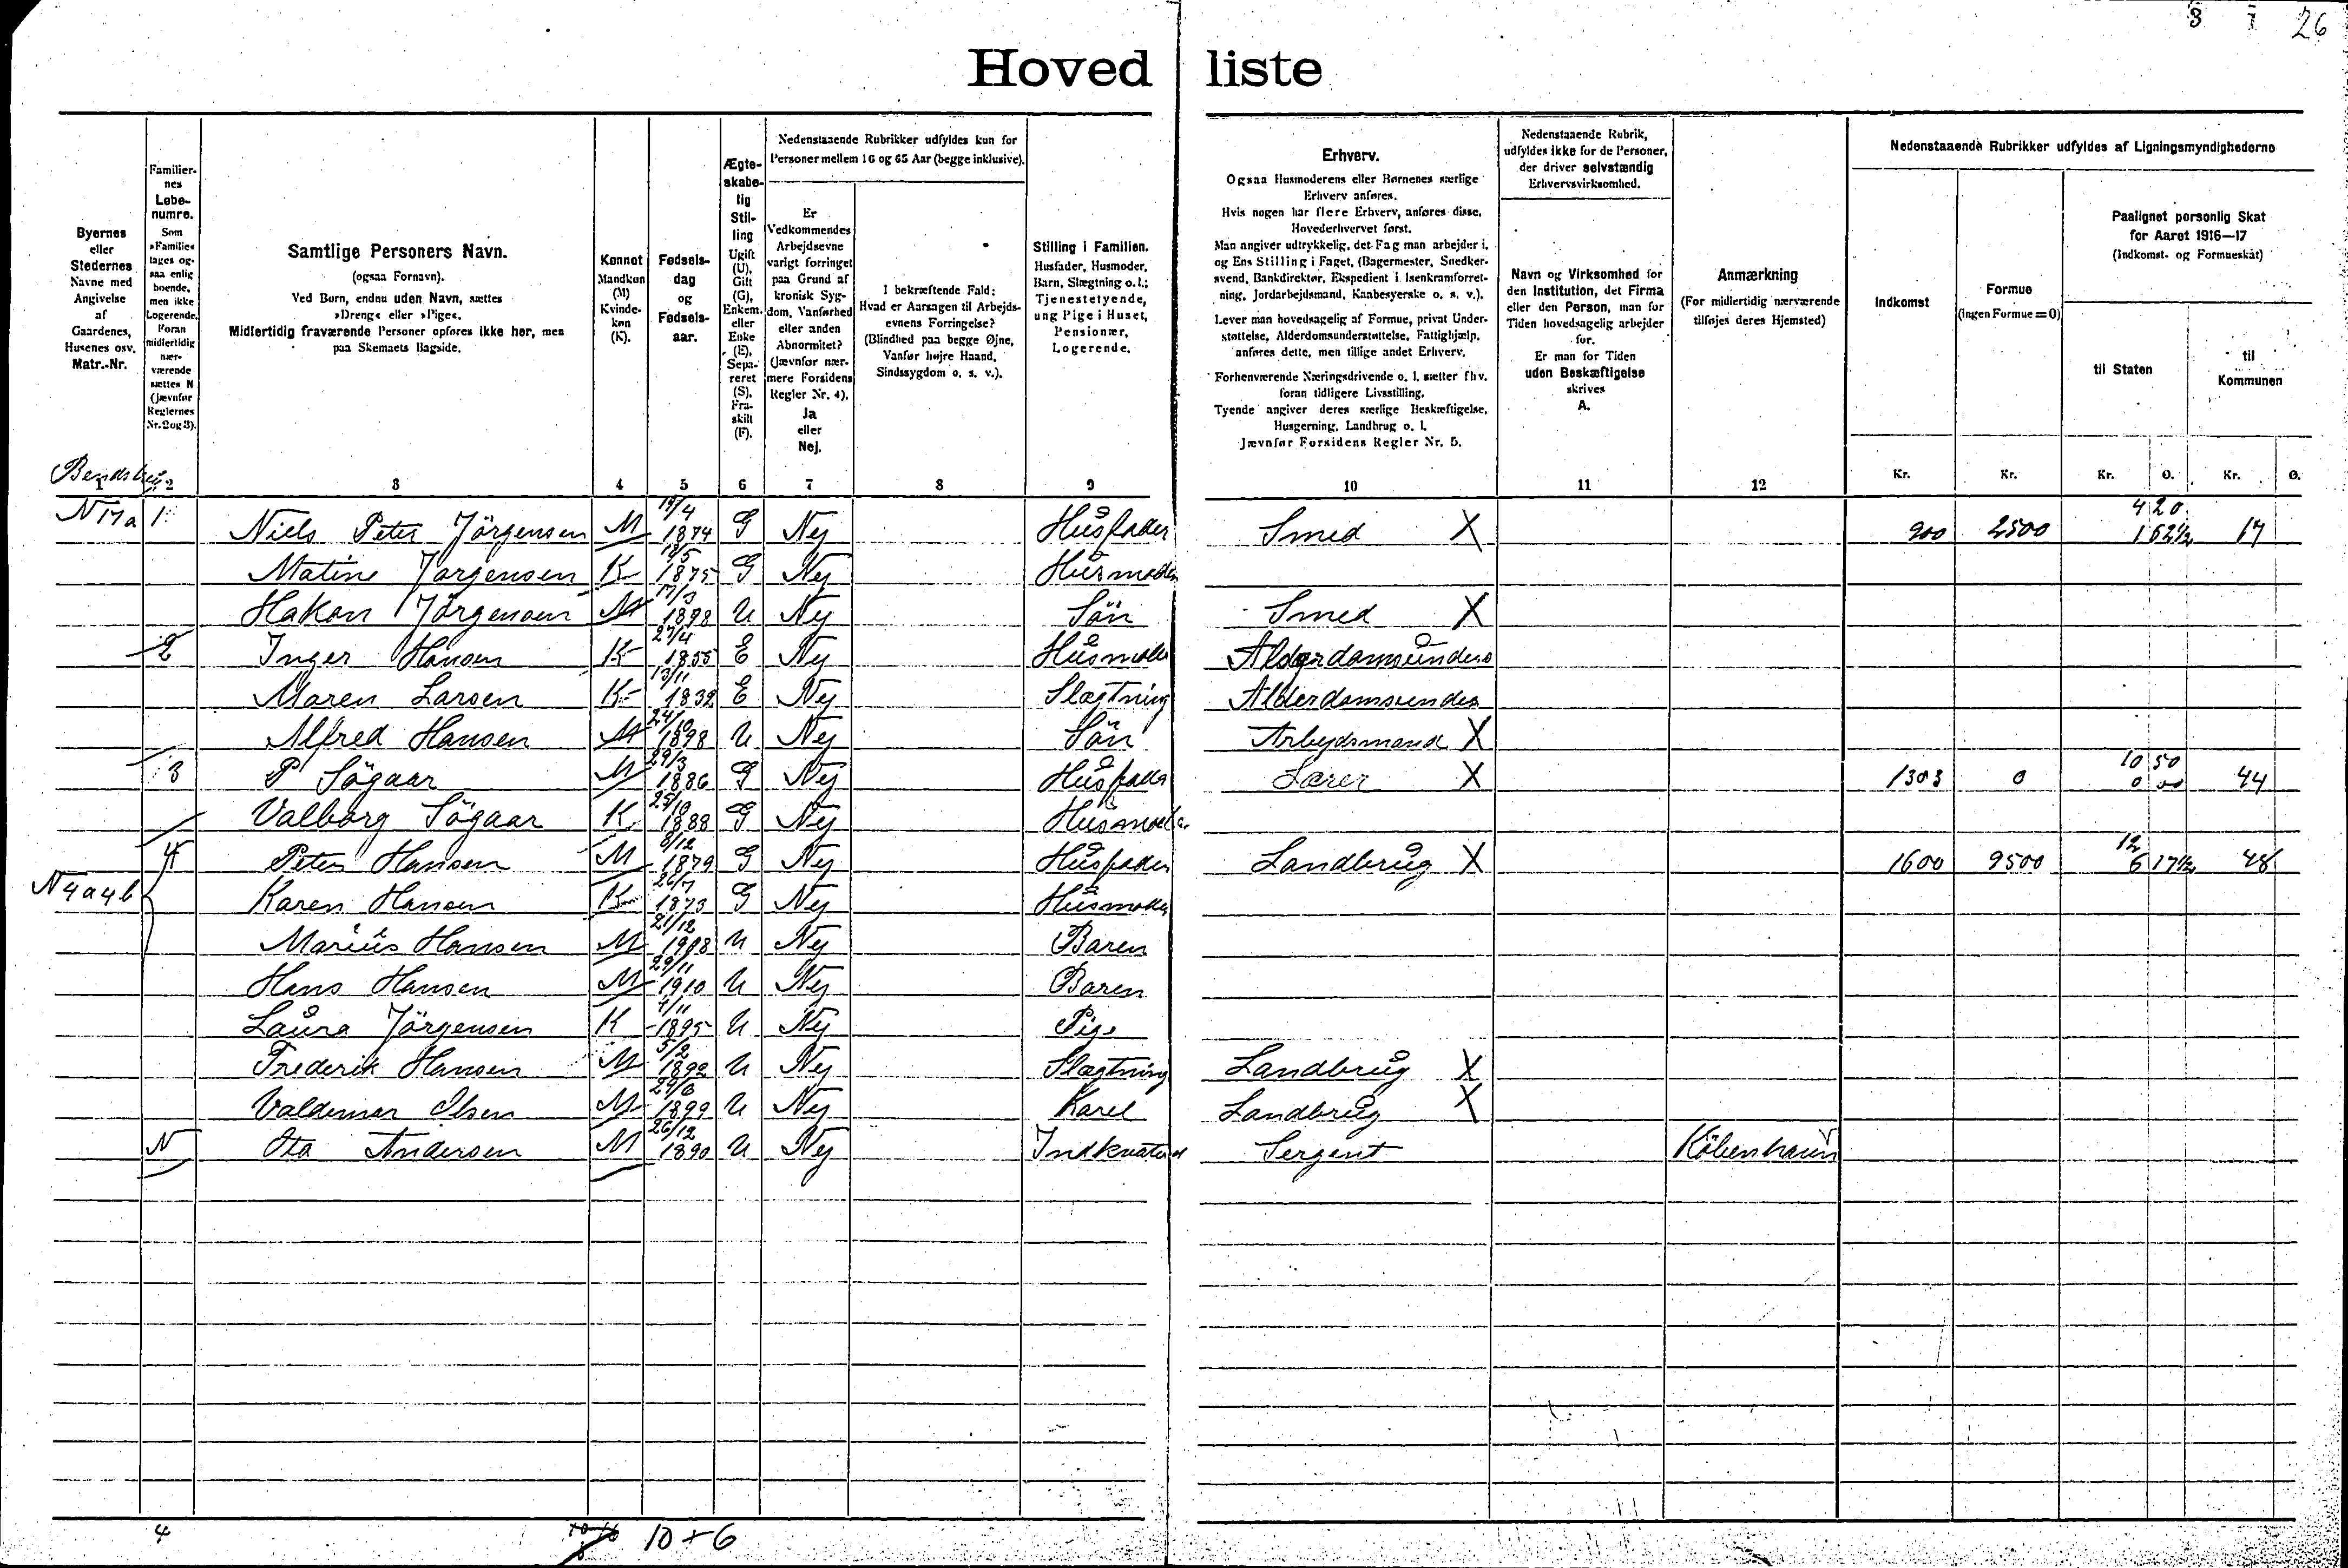 8 7 26
Hoved liste
Byernes eller Stedernes Navne med Angivelse af Gaardenes, Husenes osv. Matr.-Nr.
Familiernes Løbenumre. Som »Familie« tages ogsaa enlig boende, men ikke Logerende. Foran midlertidig nærværende sættes N (Jævnfør Reglernes Nr. 2 og 3).
Samtlige Personers Navn.
(ogsaa Fornavn).
Ved Børn, endnu uden Navn, sættes
»Dreng« eller »Pige«.
Midlertidig fraværende Personer opføres ikke her, men
paa Skemaets Bagside.
Kønnet Mandkøn (M) Kvindekøn (K).
Fødselsdag og Fødselsaar.
Ægteskabelig Stilling Ugift (U), Gift (G), Enkem. eller Enke (E), Separeret (S), Fraskilt (F).
Nedenstaaende Rubrikker udfyldes kun for
Personer mellem 16 og 65 Aar (begge inklusive).
Er Vedkommendes Arbejdsevne varigt forringet paa Grund af kronisk Sygdom, Vanførhed eller anden Abnormitet? (Jævnfør nærmere Forsidens Regler Nr. 4). Ja eller Nej.
I bekræftende Fald:
Hvad er Aarsagen til Arbejdsevnens Forringelse?
(Blindhed paa begge Øjne,
Vanfør højre Haand,
Sindssygdom o. s. v.).
Stilling i Familien.
Husfader, Husmoder,
Barn, Slægtning o. l.;
Tjenestetyende,
ung Pige i Huset,
Pensionær,
Logerende.
Erhverv.
Ogsaa Husmoderens eller Børnenes særlige
Erhverv anføres.
Hvis nogen har flere Erhverv, anføres disse,
Hovederhvervet først.
Man angiver udtrykkelig, det Fag man arbejder i,
og Ens Stilling i Faget, (Bagermester, Snedkersvend, Bankdirektør, Ekspedient i Isenkramforretning, Jordarbejdsmand, Kaabesyerske o. s. v.).
Lever man hovedsagelig af Formue, privat Understøttelse, Alderdomsunderstøttelse, Fattighjælp,
anføres dette, men tillige andet Erhverv.
Forhenværende Næringsdrivende o. l. sætter fhv.
foran tidligere Livsstilling.
Tyende angiver deres særlige Beskæftigelse,
Husgerning, Landbrug o. l.
Jævnfør Forsidens Regler Nr. 5.
Nedenstaaende Rubrik,
udfyldes ikke for de Personer,
der driver selvstændig
Erhvervsvirksomhed.
Navn og Virksomhed for
den Institution, det Firma
eller den Person, man for
Tiden hovedsagelig arbejder
for.
Er man for Tiden
uden Beskæftigelse
skrives
A.
Anmærkning
(For midlertidig nærværende
tilføjes deres Hjemsted)
Nedenstaaende Rubrikker udfyldes af Ligningsmyndighederne
Indkomst
Formue
(ingen Formue = 0)
Paalignet personlig Skat
for Aaret 1916—17
(Indkomst- og Formueskat)
til Staten
til Kommunen
Kr. Kr. Kr. Ø. Kr. Ø.
1 2 3 4 5 6 7 8 9 10 11 12
N 17a 1 Niels Peter Jörgensen M 19/4 1874 G Nej Husfader Smed X 900 2500 4 20 1 62½ 17
Matine Jörgensen K 1875 G Nej Husmoder
Hakon Jörgensen M 17/3 1898 U Nej Sön Smed X
2 Inger Hansen K 27/4 1855 E Nej Husmoder Alderdomsunders
Maren Larsen K 13/11 1832 E Nej Slægtning Alderdomsunders
Alfred Hansen M 24/10 1898 U Nej Sön Arbejdsmand X
3 P Sögaar M 29/3 1886 G Nej Husfader Lærer X 1303 0 10 50 0 00 44
Valborg Sögaar K 25/10 1888 G Nej Husmoder
4 Peter Hansen M 8/12 1879 G Nej Husfader Landbrug X 1600 9500 12 6 17½ 48
N 4a 4b Karen Hansen K 26/7 1873 G Nej Husmoder
Marius Hansen M 21/12 1908 U Nej Baren
Hans Hansen M 29/11 1910 U Nej Baren
Laura Jörgensen K 4/11 1895 U Nej Pige
Frederik Hansen M 5/2 1892 U Nej Slægtning Landbrug X
Valdemar Olsen M 1899 U Nej Karel Landbrug X
N Oto Andersen M 26/12 1890 U Nej Sergent Köbenhavn
4 10 + 6